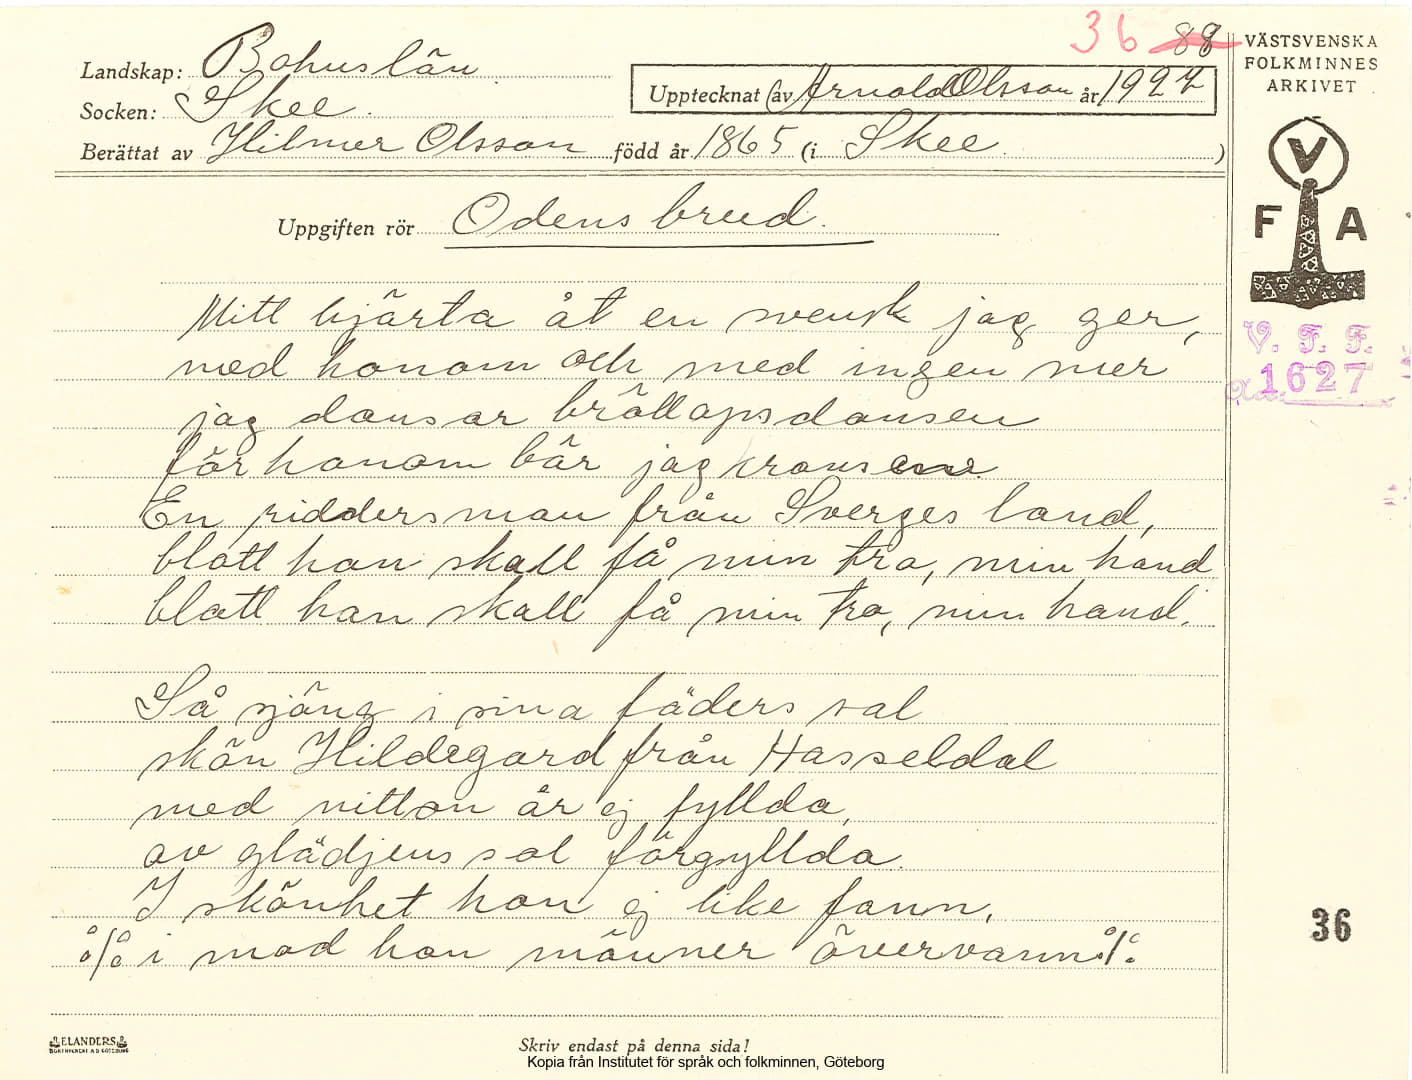 36 88
VÄSTSVENSKA
FOLKMINNES
ARKIVET
Landskap: Bohuslän
Socken: Skee
Upptecknat (av Arnold Olsson år 1927
Berättat av Hilmer Olsson född år 1865 (i Skee )
V
F A
Uppgiften rör Odens brud.
Mitt hjärta åt en svensk jag ger,
med honom och med ingen mer
jag dansar bröllopsdansen
för honom bär jag kransen
En riddersman från Sverges land,
blott han skall få min tro, min hand
blott han skall få min tro, min hand.
V. F. F.
1627
Så sjöng i sina fäders sal
skön Hildegard från Hasseldal
med nitton år ej fyllda,
av glädjens sol förgyllda.
I skönhet hon ej like fann,
% i mod hon männer övervann %
36
ELANDERS
BOKTRYCKERI A.B. GÖTEBORG
Skriv endast på denna sida!
Kopia från Institutet för språk och folkminnen, Göteborg